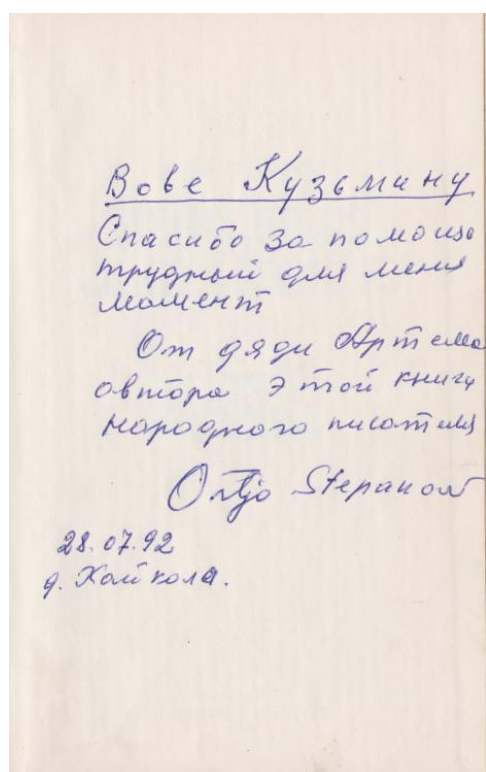 Вове Кузьмину
Спасибо за помощь
трудный для меня
момент
От дяди Артема
автора этой книги
народного писателя
Ortjo Stepanov
28.07.92
д. Хайкола.